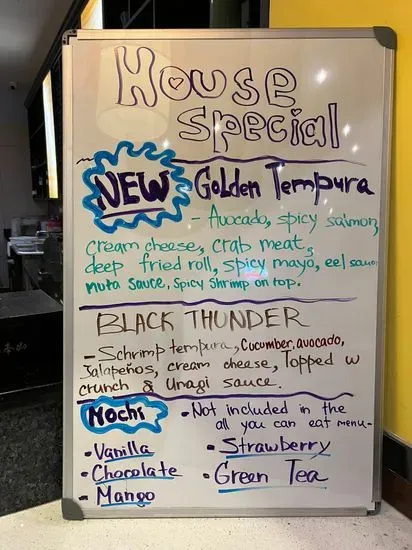 House
Special
NEW Golden Tempura
- Avocado, spicy salmon,
cream cheese, crab meat,
deep fried roll, spicy mayo, eel sauce
muta sauce, spicy shrimp on top.
BLACK THUNDER
- Schrimp tempura, Cucumber, avocado,
Jalapeños, cream cheese, Topped w
crunch & Unagi sauce.
Mochi • Not included in the
all you can eat menu-
• Vanilla • Strawberry
• Chocolate • Green Tea
• Mango